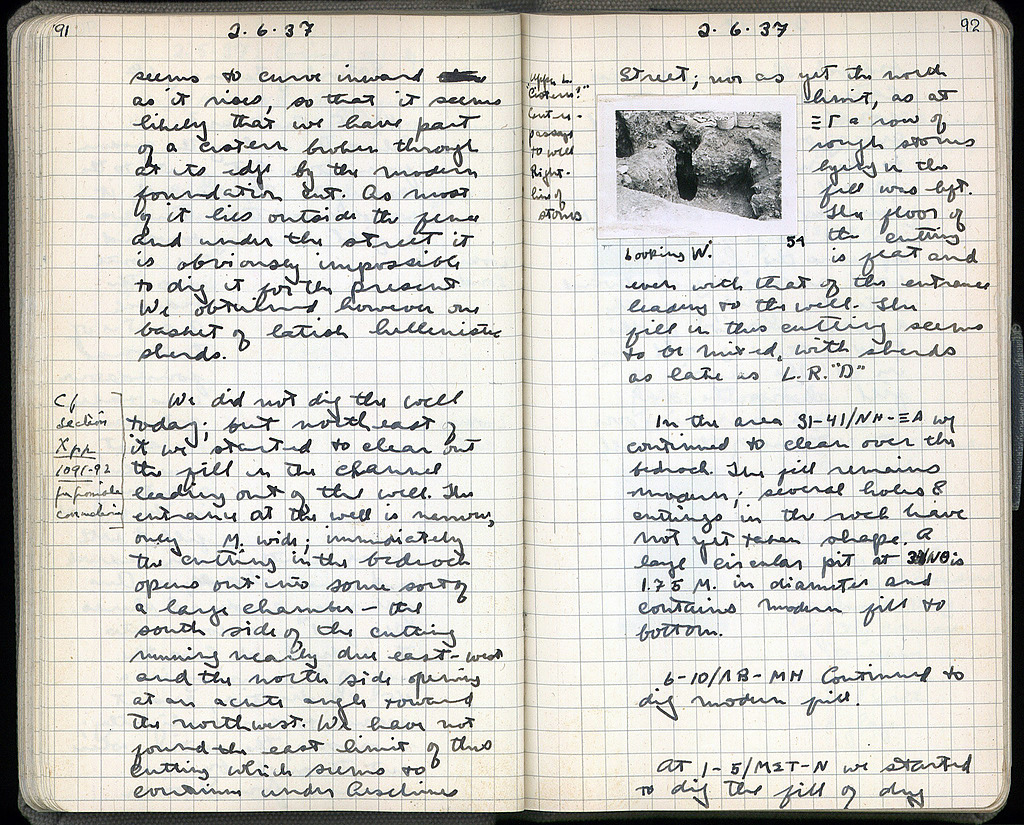 91
2.6.37
seems to curve inward
as it rises, so that it seems
likely that we have part
of a cistern broken through
at its edge by the modern
foundation cut. As most
of it lies outside the fence
and under the street it
is obviously impossible
to dig it for the present
We obtained however one
basket of latish hellenistic
sherds.
Cf
section
X pp
1091-92
We did not dig the well
today; but northeast of
it we started to clear out
the fill in the channel
leading out of the well. The
entrance at the well is narrow,
only M. wide; immediately
the cutting in the bedrock
opens out into some sort of
a large chamber – the
south side of the cutting
running nearly due east-west
and the north side opening
at an acute angle toward
the northwest. We have not
found the east limit of this
cutting which seems to
continue under Aeschines
92
2.6.37
"Upper L.
Cistern?"
Center-
passage
to well
Right-
line of
stones
Looking W.
54
Street; nor as yet the north
limit, as at
ΞΓ a row of
rough stones
lying in the
fill was left.
The floor of
the cutting
is flat and
even with that of the entrance
leading to the well. The
fill in this cutting seems
to be mixed, with sherds
as late as L.R. "D"
In the area 31-41/NH-ΞA we
continued to clean over the
bedrock. The fill remains
modern; several holes &
cuttings in the rock have
not yet taken shape. A
large circular pit at /ΝΘ is
1.75 M. in diameter and
contains modern fill to
bottom.
6-10/ΛB-MH Continued to
dig modern fill.
At 1-5/MΣT-N we started
to dig the fill of dug